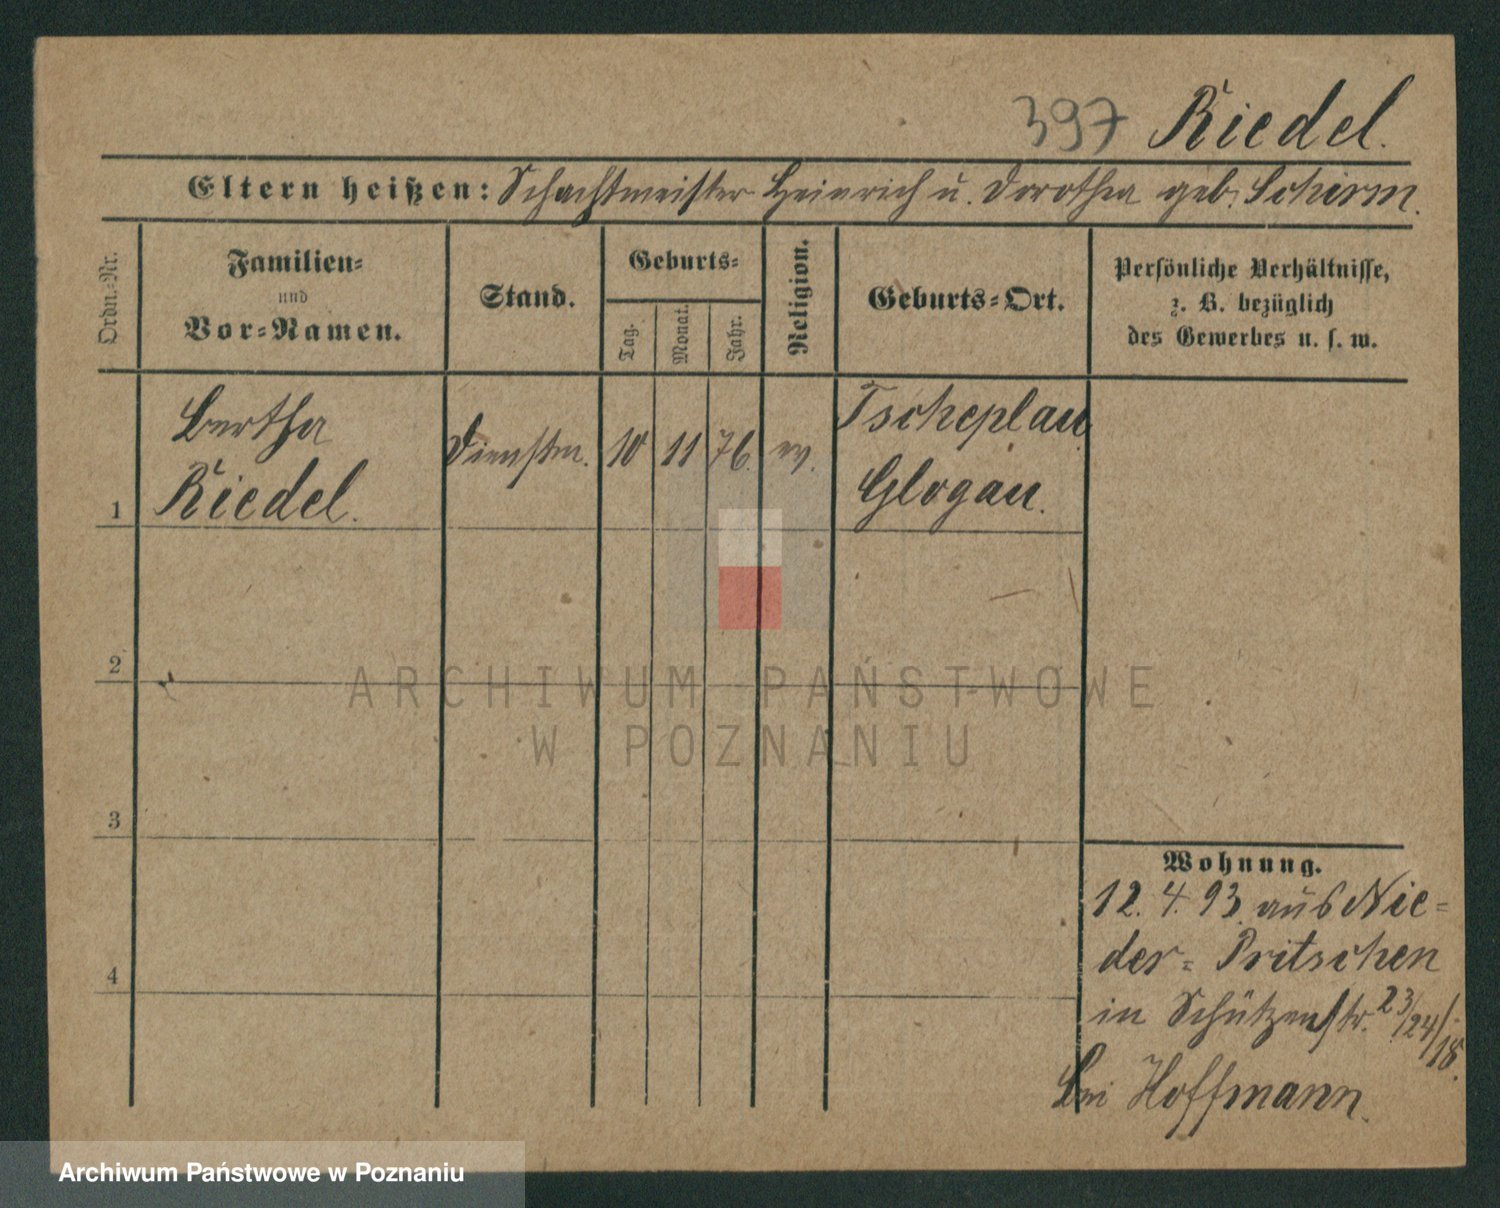 397 Riedel.
Eltern heißen: Schachtmeister Heinrich u. Dorothea geb. Schirm.
Ordn.-Nr.
Familien-
und
Vor-Namen.
Stand.
Geburts-
Tag.
Monat.
Jahr.
Religion.
Geburts-Ort.
Persönliche Verhältnisse,
z. B. bezüglich
des Gewerbes u. s. w.
1
Bertha
Riedel.
Dienstm.
10
11
76.
ev.
Tscheplau
Glogau.
2
3
4
ARCHIWUM PAŃSTWOWE
W POZNANIU
Wohnung.
12. 4. 93 aus Nie=
der= Pritschen
in Schützenstr. 23/24/18.
bei Hoffmann.
Archiwum Państwowe w Poznaniu